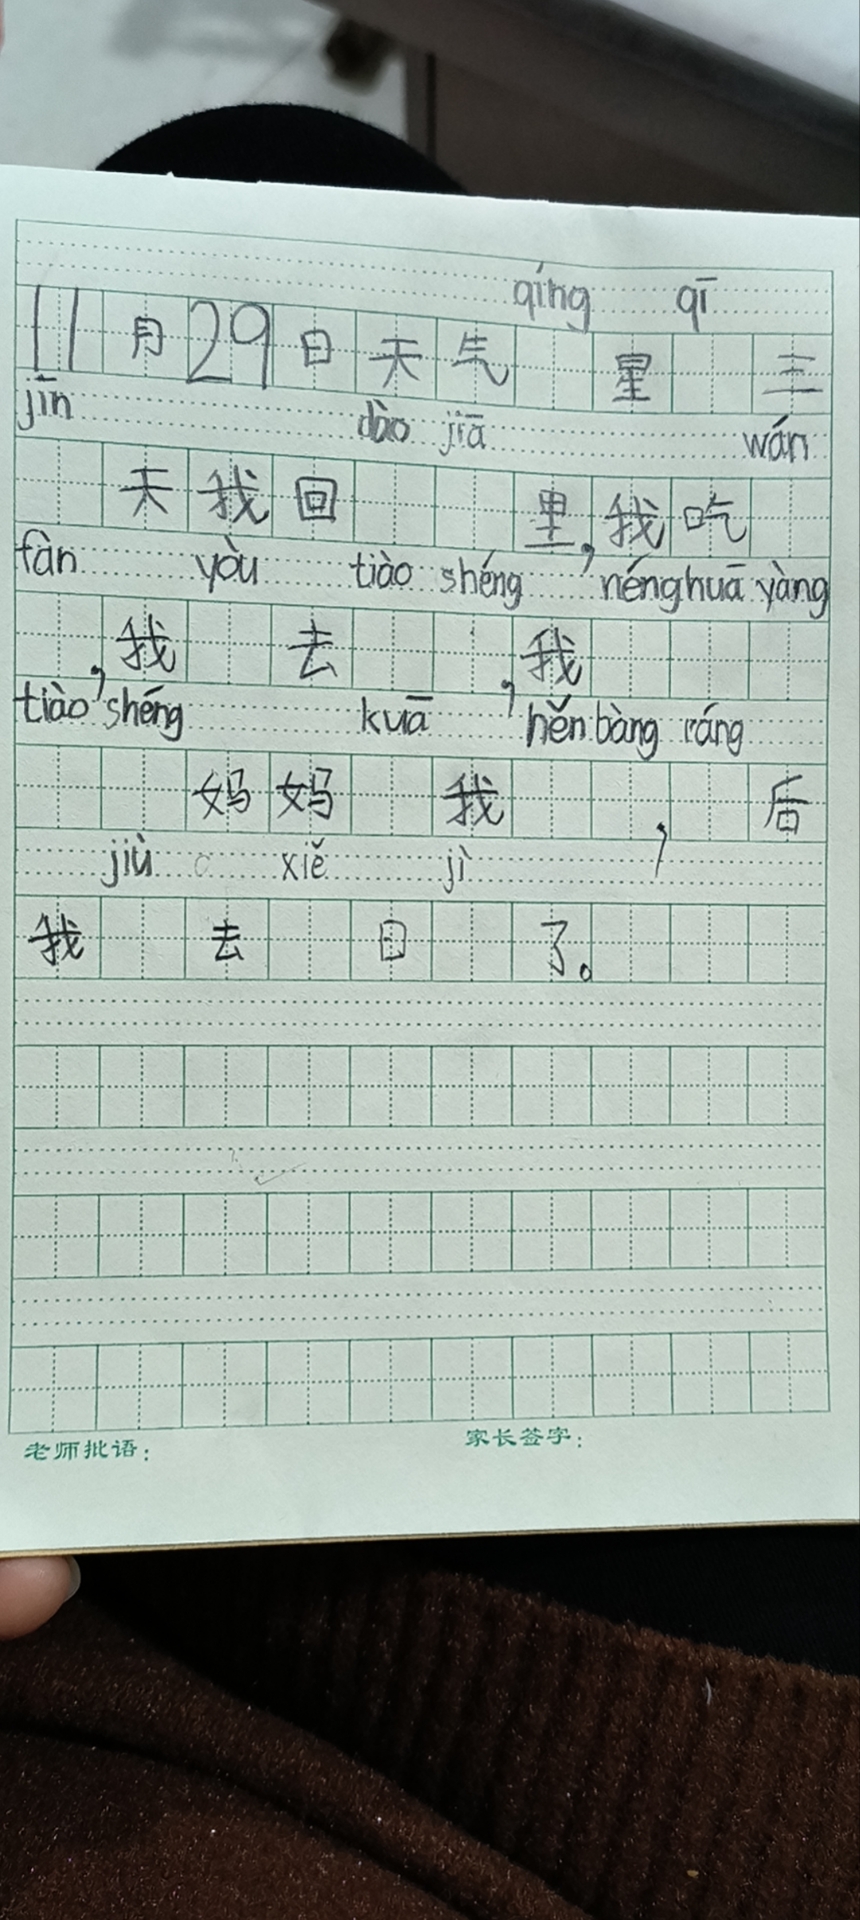 qíng qī
11月29日天气 星 三
jīn dào jiā wán
天我回 里,我吃
fàn yòu tiào shéng néng huā yàng
,我 去 ,我
tiào shéng kuā hěn bàng ráng
妈妈 我 , 后
jiù xiě jì
我 去 日 了。
老师批语: 家长签字: